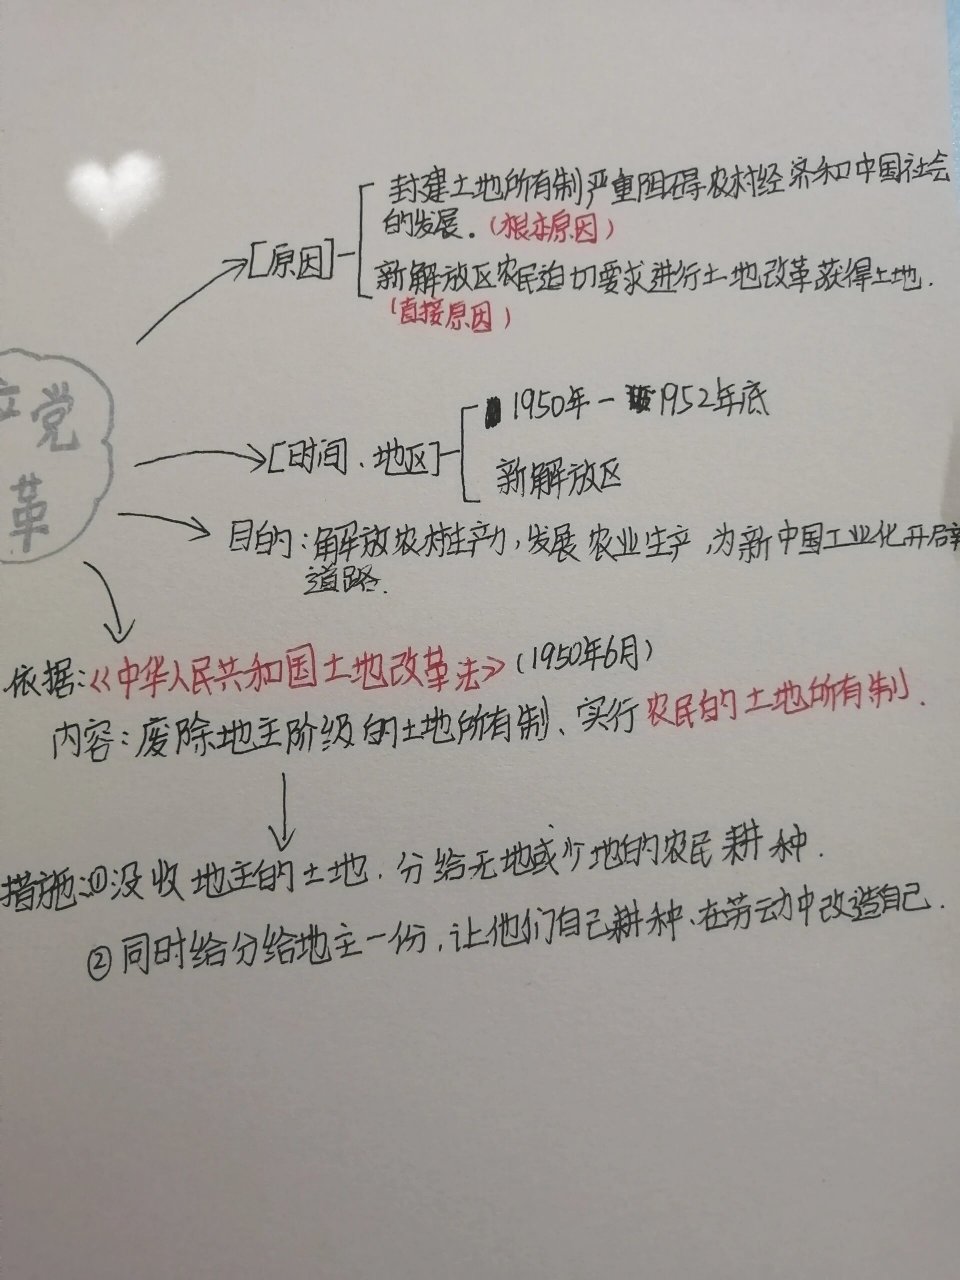 [原因]
封建土地所有制严重阻碍农村经济和中国社会
的发展。(根本原因)
新解放区农民迫切要求进行土地改革获得土地.
(直接原因)
党
革
[时间、地区]
1950年-1952年底
新解放区
目的:解放农村生产力,发展农业生产,为新中国工业化开启
道路.
依据:《中华人民共和国土地改革法》(1950年6月)
内容:废除地主阶级的土地所有制、实行农民的土地所有制.
措施:①没收地主的土地.分给无地或少地的农民耕种.
②同时给分给地主一份,让他们自己耕种、在劳动中改造自己.